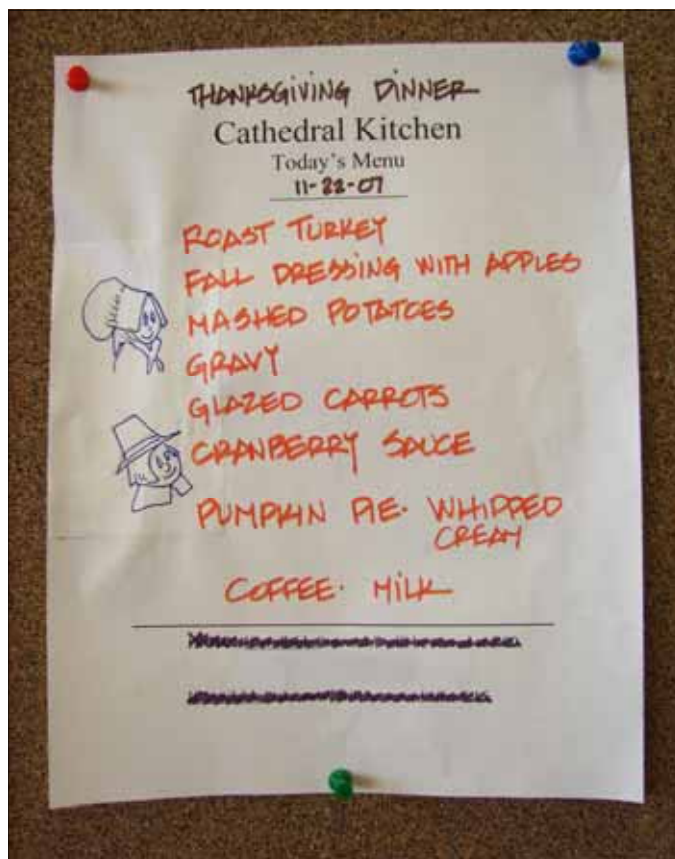 THANKSGIVING DINNER
Cathedral Kitchen
Today's Menu
11-22-07
ROAST TURKEY
FALL DRESSING WITH APPLES
MASHED POTATOES
GRAVY
GLAZED CARROTS
CRANBERRY SAUCE
PUMPKIN PIE. WHIPPED
CREAM
COFFEE. MILK